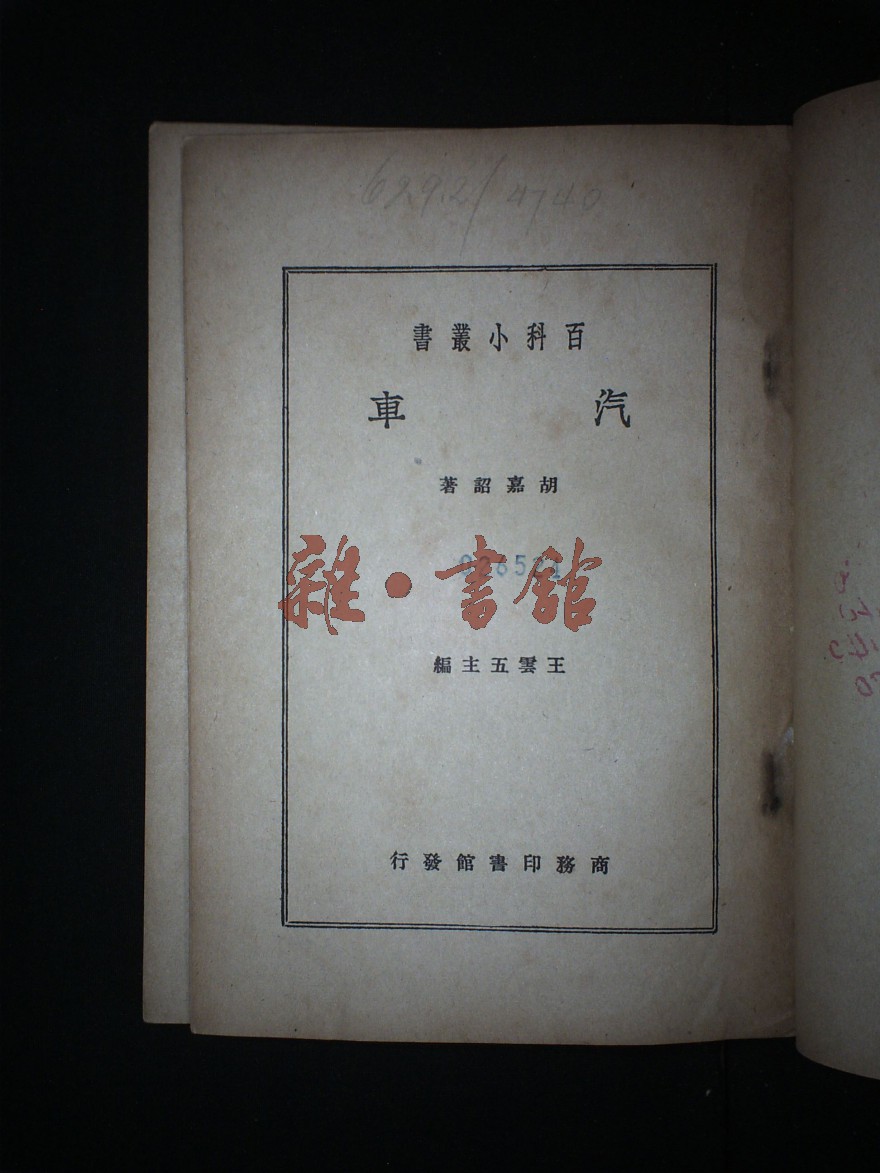 629.2/4740
百科小叢書
汽車
胡嘉詔著
雜·書館
王雲五主編
商務印書館發行